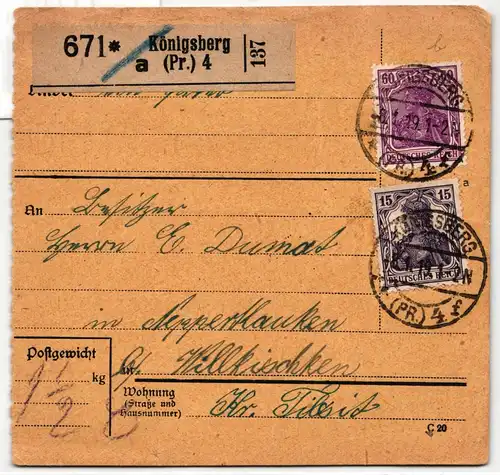 671* Königsberg
a (Pr.) 4
137
60
KÖNIGSBERG
(PR.) 4 f
DEUTSCHES REICH
a
15 15
KÖNIGSBERG
DEUTSCHES REICH
(PR.) 4 f
An Besitzer
Herrn E. Dumat
in
Postgewicht
kg
p/ Willkischken
Wohnung
(Straße und
Hausnummer)
Kr. Tilsit
C 20